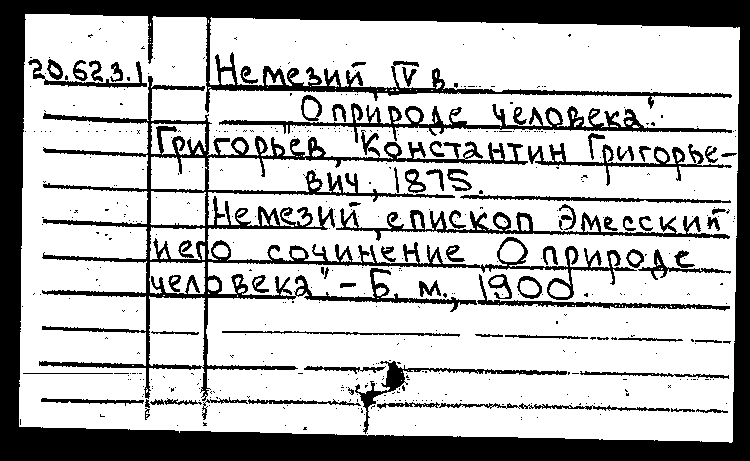 20.62.3.1. Немезий, IV в.
"О природе человека".
Григорьев, Константин Григорье-
вич, 1875.
Немезий, епископ Эмесский
и его сочинение "О природе
человека". - Б. м., 1900.